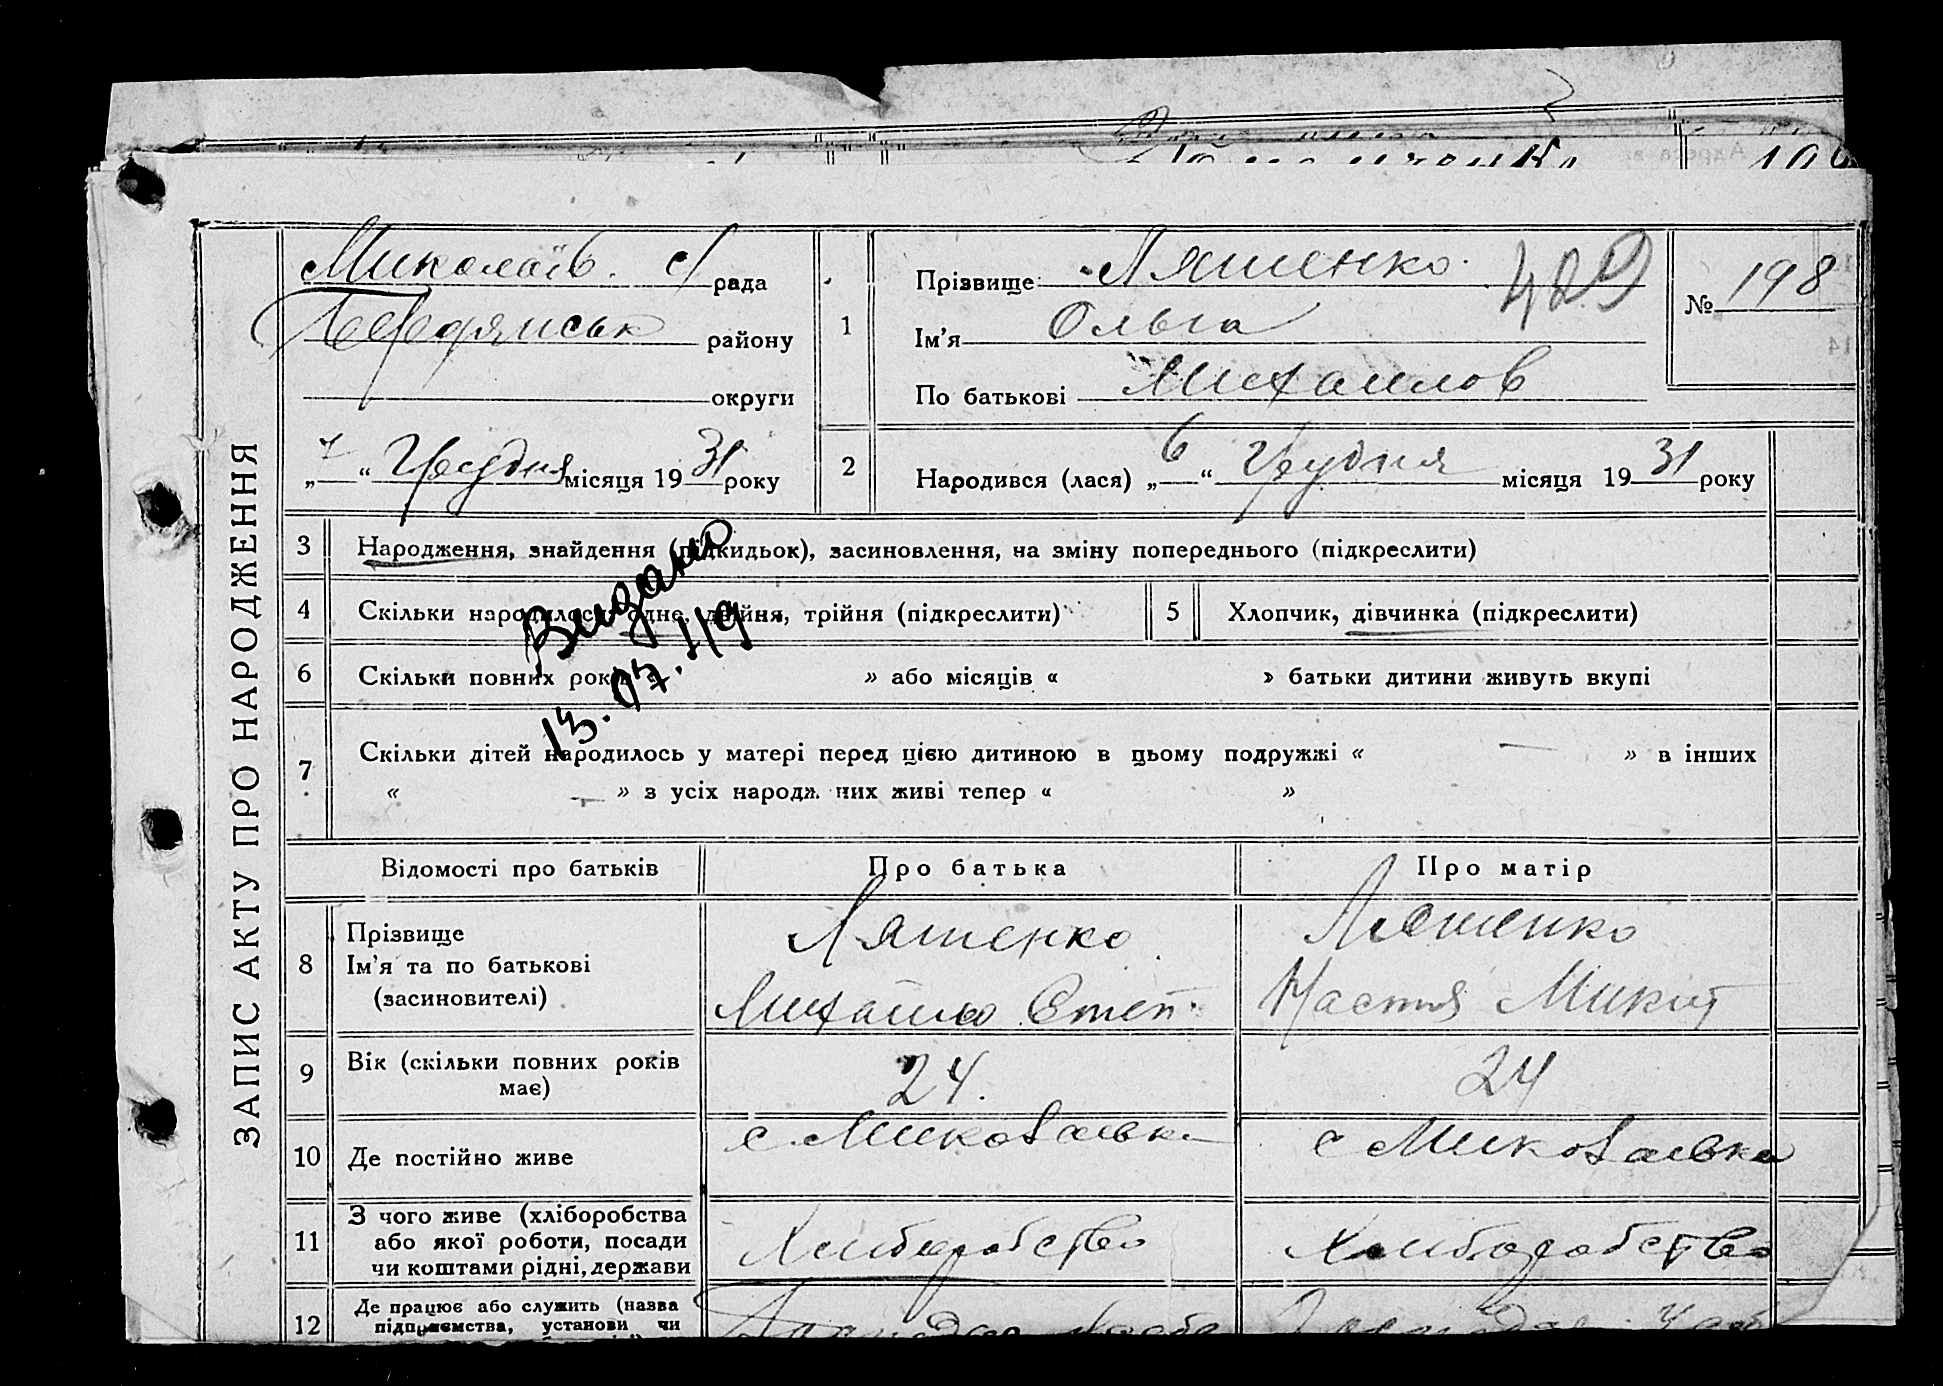 ЗАПИС АКТУ ПРО НАРОДЖЕННЯ
Миколаїв. с/рада
Бердянськ району
округи
„7“ Грудня місяця 1931 року
1
Прізвище Ляшенко
Ім'я Ольга
По батькові Михайлов
489
№ 198
2
Народився (лася) „6“ Грудня місяця 1931 року
3 Народження, знайдення (підкидьок), засиновлення, на зміну попереднього (підкреслити)
4 Скільки народилося: одне, двійня, трійня (підкреслити)
5 Хлопчик, дівчинка (підкреслити)
6 Скільки повних років » або місяців « » батьки дитини живуть вкупі
Видано
13.07.
7 Скільки дітей народилось у матері перед цією дитиною в цьому подружжі « — » в інших
« — » з усіх народж них живі тепер « »
Відомості про батьків Про батька Про матір
8 Прізвище
Ім'я та по батькові
(засиновителі)
Ляшенко
Михайло Степ.
Ляшенко
Настя Микит
9 Вік (скільки повних років
має)
24. 24
10 Де постійно живе
с. Миколаївка с Миколаївка
11 З чого живе (хліборобства
або якої роботи, посади
чи коштами рідні, держави
Хліборобство Хліборобство
12 Де працює або служить (назва
підприємства, установи чи